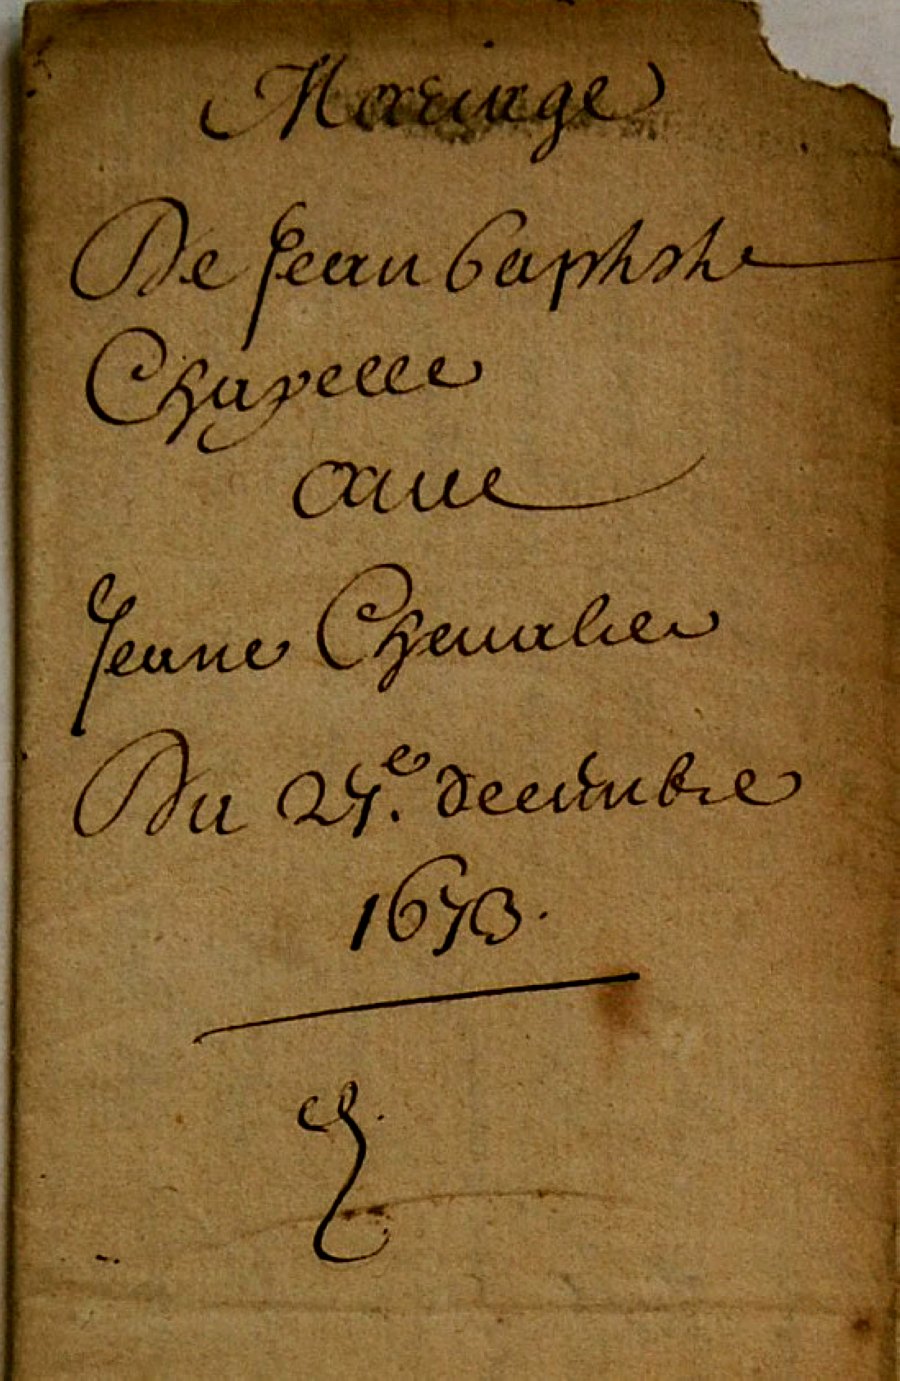 Mariage
De Jean baptiste
Chapelle
avec
Jeane Chevalier
Du 27e. decembre
1673.